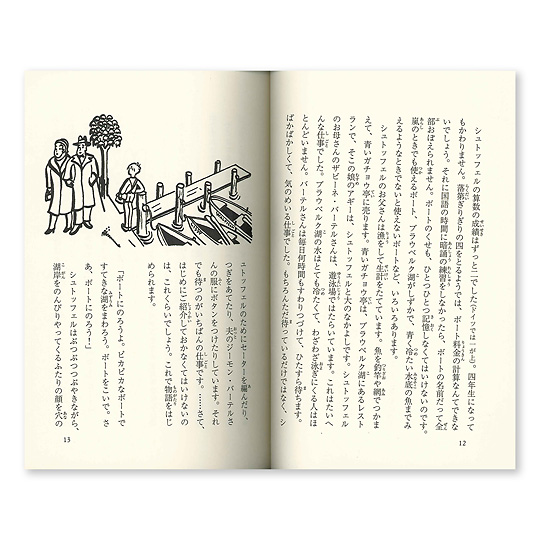 シュトッフェルの算数の成績はずっと二でした(ドイツでは一が上)。四年生になって
もかわりません。落第ぎりぎりの四をとるようでは、ボート料金の計算なんてできな
いでしょう。それに国語の時間に暗誦の練習をしなかったら、ボートの名前だって全
部おぼえられません。ボートのくせも、ひとつひとつ記憶しなくてはいけないのです。
嵐のときでも使えるボート、ブラウベルク湖がしずかで、青く冷たい水底の魚までみ
えるようなときでないと使えないボートなど、いろいろあります。
シュトッフェルのお父さんは漁をして生計をたてています。魚を釣竿や網でつかま
えて、青いガチョウ亭に売ります。青いガチョウ亭は、ブラウベルク湖にあるレスト
ランで、そこの娘のアギーは、シュトッフェルと大のなかよしです。シュトッフェル
のお母さんのザビーネ・バーテルさんは、遊泳場ではたらいています。これはたいへ
んな仕事でした。ブラウベルク湖の水はとても冷たくて、わざわざ泳ぎにくる人はほ
とんどいません。バーテルさんは毎日何時間もすわりつづけて、ひたすら待ちます。
ばかばかしくて、気のめいる仕事でした。もちろんただ待っているだけではなく、シ
12
ュトッフェルのためにセーターを編んだり、
つぎをあてたり、夫のジーモン・バーテルさ
んの服にボタンをつけたりしています。それ
でも待つのがいちばんの仕事です。……さて、
はじめにご紹介しておかなくてはいけないの
は、これくらいでしょう。これで物語をはじ
められます。
「ボートにのろうよ。ピカピカなボートで
すてきな湖をまわろう。ボートをこいで。さ
あ、ボートにのろう!」
シュトッフェルはぶつぶつつぶやきながら、
湖岸をのんびりやってくるふたりの顔を穴の
13